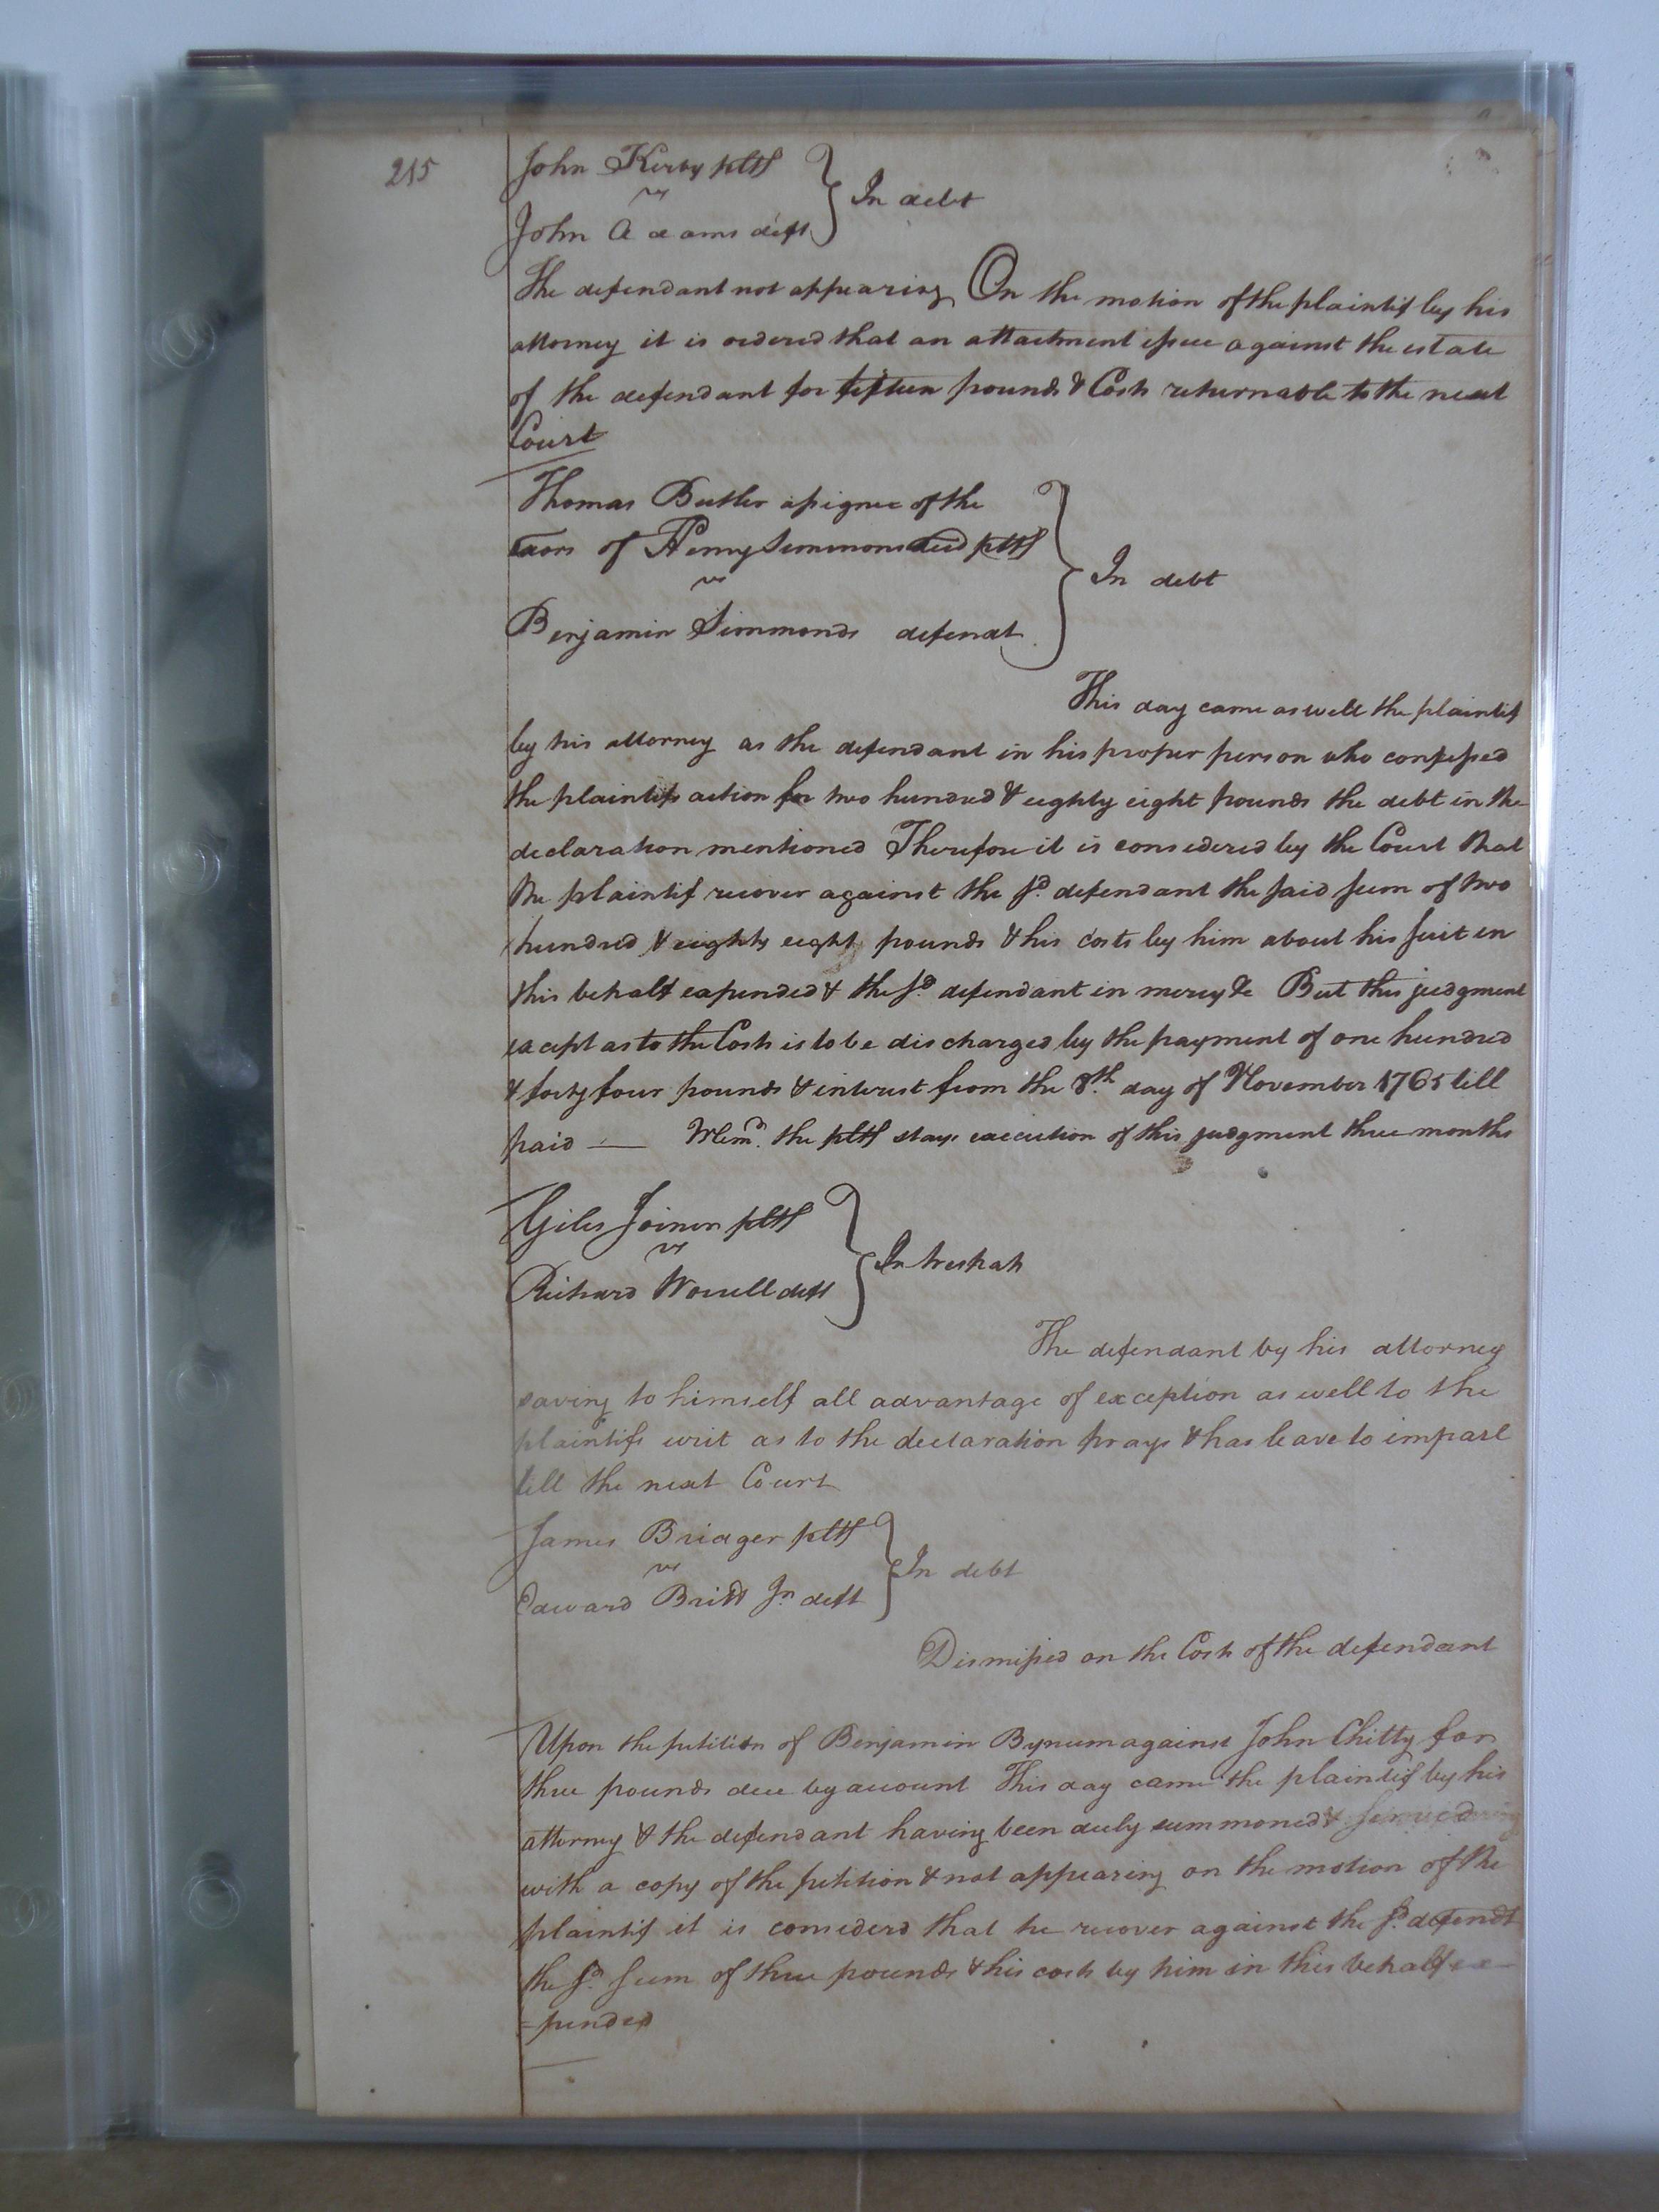 215
John Kirby pltf
vs
John Adams deft
In debt
The defendant not appearing On the motion of the plaintif by his
attorney it is ordered that an attachment issue against the estate
of the defendant for fifteen pounds & Costs returnable to the next
Court
Thomas Butler assignee of the
exors of Henry Simmons decd pltf
vs
Benjamin Simmonds defendt
In debt
This day came as well the plaintif
by his attorney as the defendant in his proper person who confessed
the plaintifs action for two hundred & eighty eight pounds the debt in the
declaration mentioned Therefore it is considered by the Court that
the plaintif recover against the sd. defendant the said sum of two
hundred & eighty eight pounds & his costs by him about his suit in
this behalf expended & the sd. defendant in mercy &c But this judgment
except as to the Costs is to be discharged by the payment of one hundred
& forty four pounds & interest from the 8th. day of November 1765 till
paid — Memd. the pltf stays execution of this judgment three months
Giles Joiner pltf
vs
Richard Worrell deft
In trespass
The defendant by his attorney
saving to himself all advantage of exception as well to the
plaintifs writ as to the declaration prays & has leave to imparl
till the next Court
James Bridger pltf
vs
Edward Britt Jr. deft
In debt
Dismissed on the Costs of the defendant
Upon the petition of Benjamin Bynum against John Chitty for
three pounds due by account This day came the plaintif by his
attorney & the defendant having been duly summoned & served
with a copy of the petition & not appearing on the motion of the
plaintif it is considerd that he recover against the sd. defendt
the sd. sum of three pounds & his costs by him in this behalf ex-
=pended